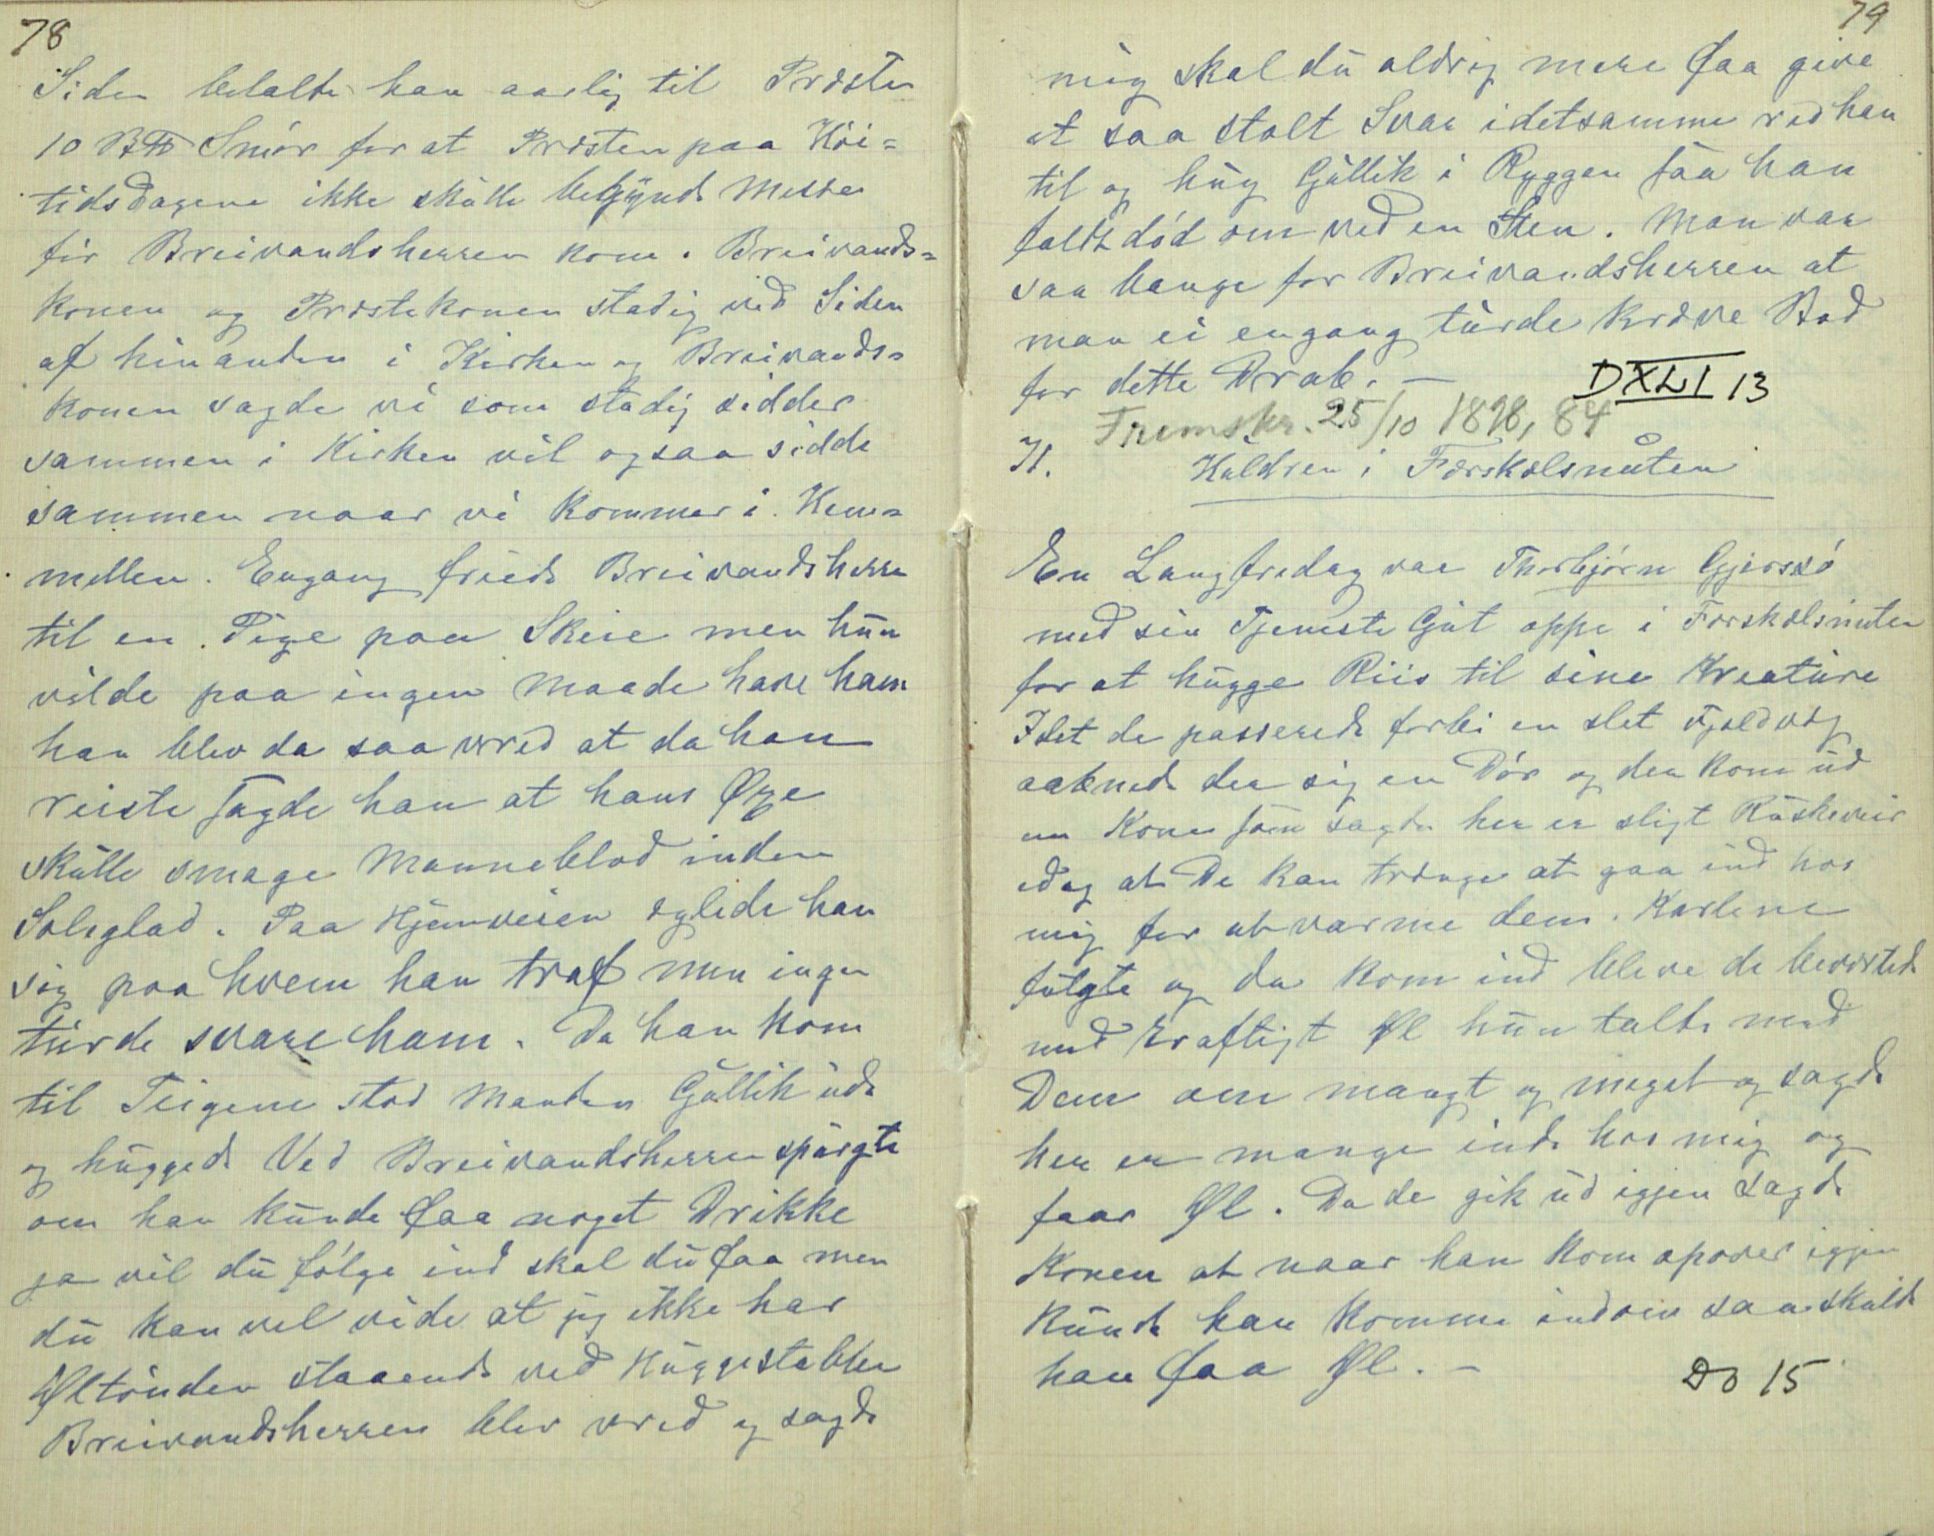 78
Siden betalte han aarlig til Præsten
10 B℔ Smør for at Præsten paa Høi=
tidsdagene ikke skulle begynde Messe
før Breivandsherren kom. Breivands=
konen og Præstekonen stadig ved Siden
af hinanden i Kirken og Breivands=
konen sagde vi som stadig sidder
sammen i Kirken vil ogsaa sidde
sammen naar vi kommer i Him=
mellen. Engang friede Breivandsherren
til en Pige paa Skeie men hun
vilde paa ingen Maade have ham
han blev da saa vred at da han
reiste sagde han at hans Øxe
skulle smage Manneblod inden
Soleglad. Paa Hjemveien eglede han
sig paa hvem han traf men ingen
turde svare ham. Da han kom
til Teigene stod Manden Gullik ude
og huggede Ved Breivandsherren spurgte
om han kunde faa noget Drikke
ja vil du følge ind skal du faa men
du kan vel vide at jeg ikke har
Øltønden staaende ved Huggestabben
Breivandsherren blev vred og sagde
79
mig skal du aldrig mere faa give
et saa stolt Svar idetsamme red han
til og hug Gullik i Ryggen saa han
faldt død om ved en Sten. Man var
saa bange for Breivandsherren at
man ei engang turde kræve Bod
for dette Drab. —
DXLI 13
Fremskr. 25/10 1898, 84
H.
Huldren i Førskelsnuten
En Langfredag var Thorbjørn Gjerssø
med sin Tjeneste Gut oppe i Førskelsnuten
for at hugge Riis til sine Kreature
Idet de passerede forbi en slet Fjeldvæg
aabnede der sig en Dør og der kom ud
en Kone som sagde her er sligt Ruskeveir
idag at De kan trænge at gaa ind hos
mig for at varme dem. Karlene
fulgte og da kom ind bleve de beværtede
med kraftigt Øl hun talte med
Dem om mangt og meget og sagde
her er mange inde hos mig og
faar Øl. Da de gik ud igjen sagde
Konen at naar han kom opover igjen
kunde han komme indom saa skulde
han faa Øl. —
Do 15